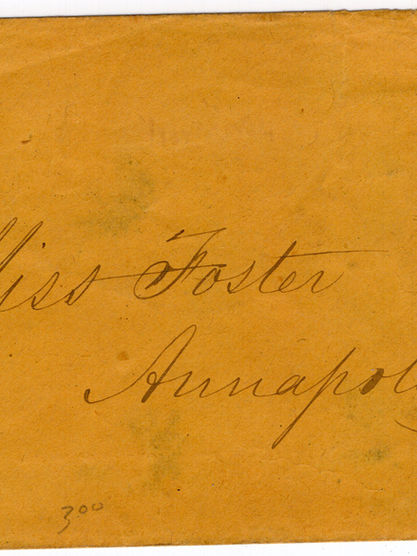 iss Foster
Annapol
300